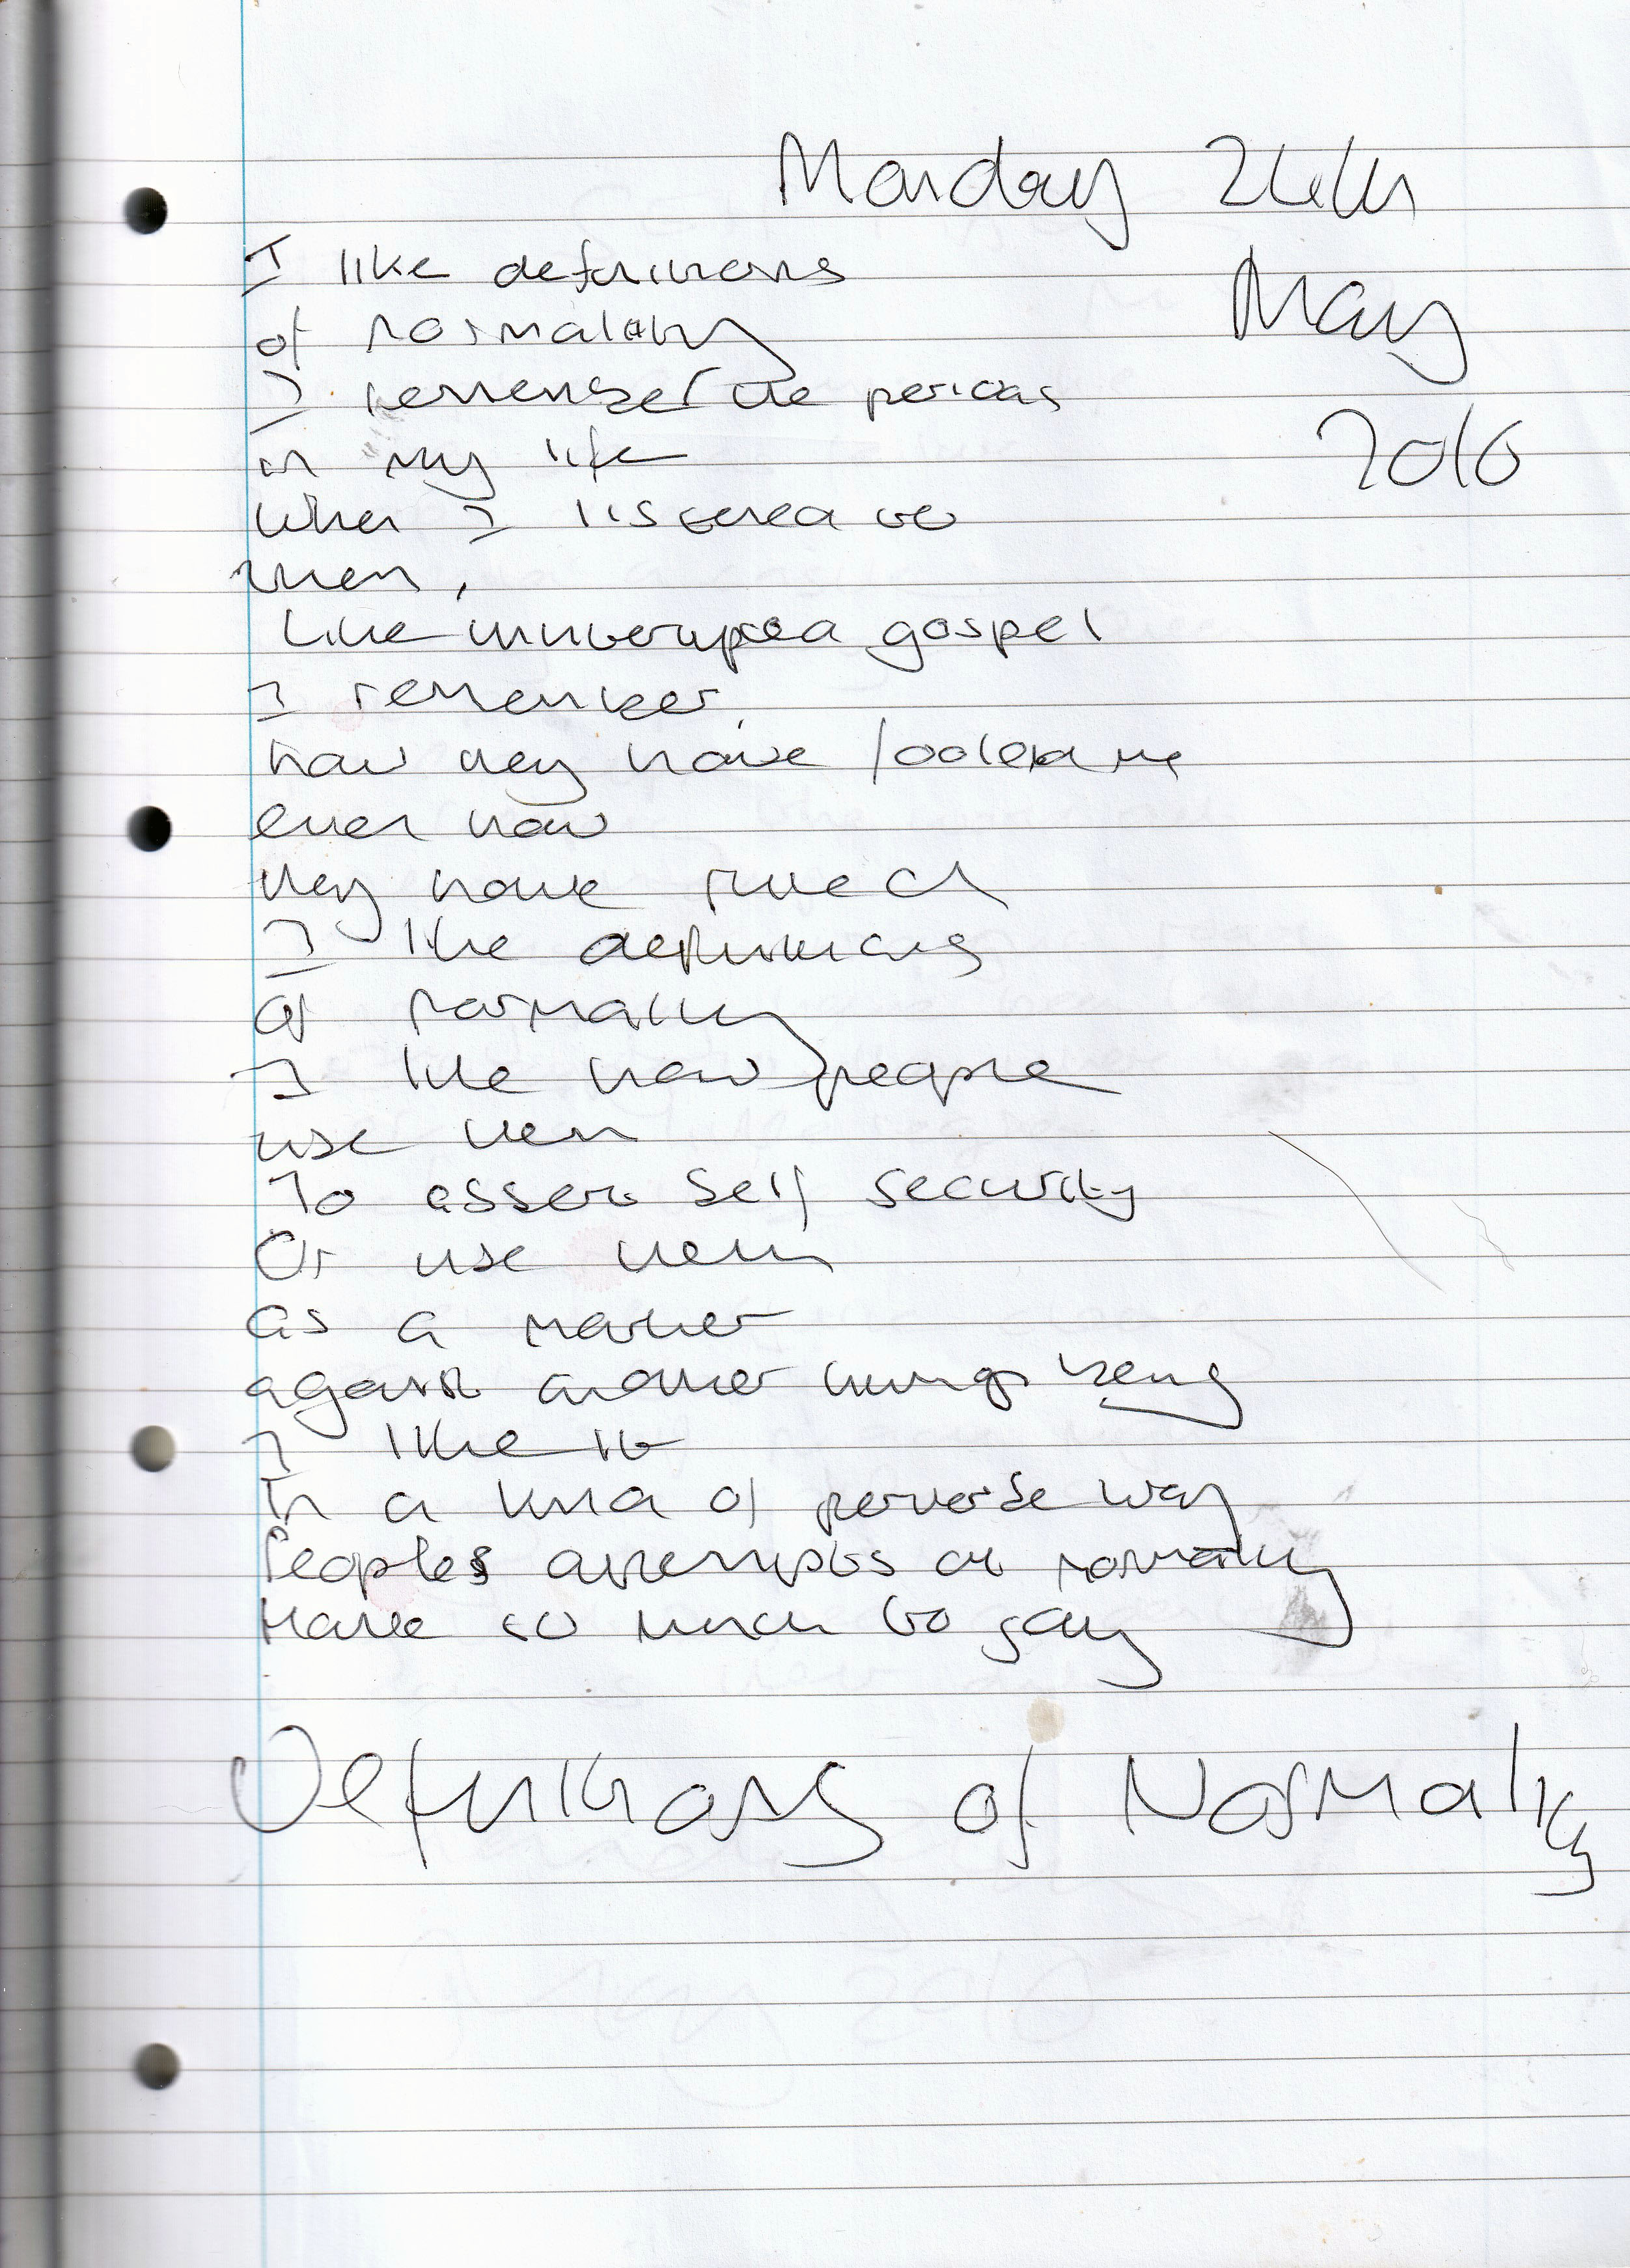 Monday 24th
May
2010
I like definitions
of normality
I remember the periods
in my life
When I listened to
them,
Like uninterupted gospel
I remember,
how they have fooled me
even how
they have
I like definitions
of normality
I like how people
use them
To assert self security
Or use them
as a marker
against another being
I like it
In a kind of perverse way
Peoples attempts at normality
Have so much to say
Definitions of Normality